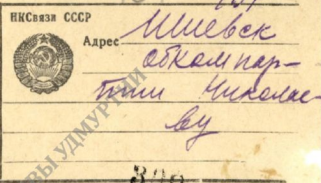 НКСвязи СССР
Адрес Ижевск
обкомпар-
тии Николае-
ву